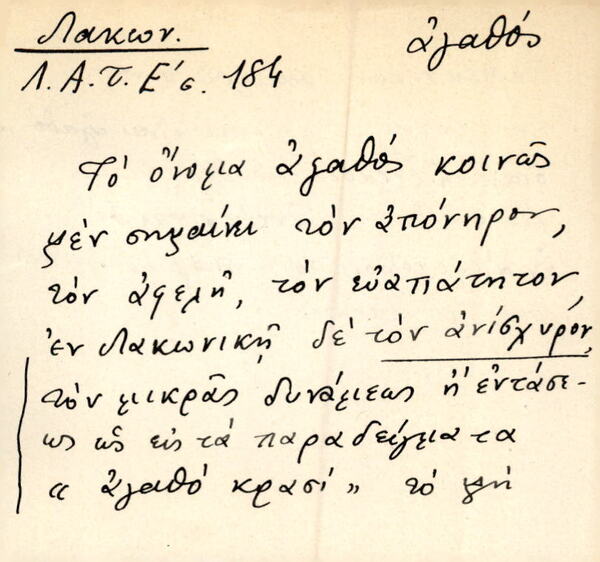 Λακων.
ἀγαθός
Λ. Α. τ. Ε' σ. 184
Τὸ ὄνομα ἀγαθός κοινῶς
μὲν σημαίνει τὸν ἀπόνηρον,
τὸν ἀφελῆ, τὸν εὐαπάτητον,
ἐν Λακωνικῇ δὲ τὸν ἀνίσχυρον,
τὸν μικρᾶς δυνάμεως ἢ ἐντάσε-
ως ὡς εἰς τὰ παραδείγματα
«ἀγαθὸ κρασί» τὸ μὴ